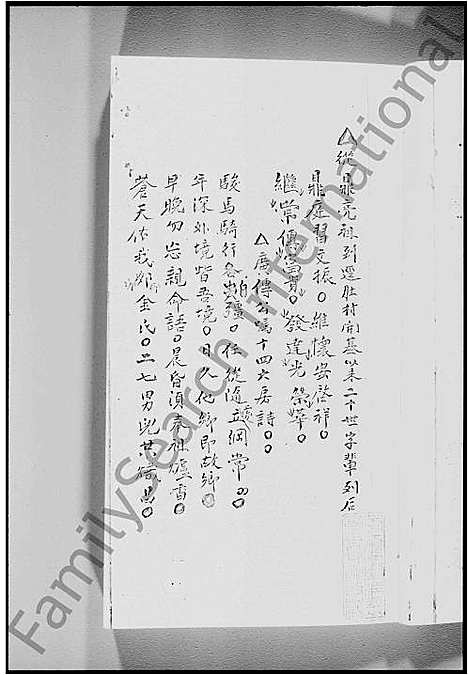 △從鼎亮祖到選壯村開基以來二十世字輩列后
鼎庭習文振。維懷安啓祥。
繼常傳富貴。發達光榮華。
△廣傳公寫十四大房詩。。
駿馬騎行各出疆。任從隨處立綱常。
年深外境皆吾境。日久他鄉即故鄉。
早晚勿忘親命語。晨昏須奉祖爐香。
蒼天佑我劉金氏。二七男兒共熾昌。
FamilySearch International